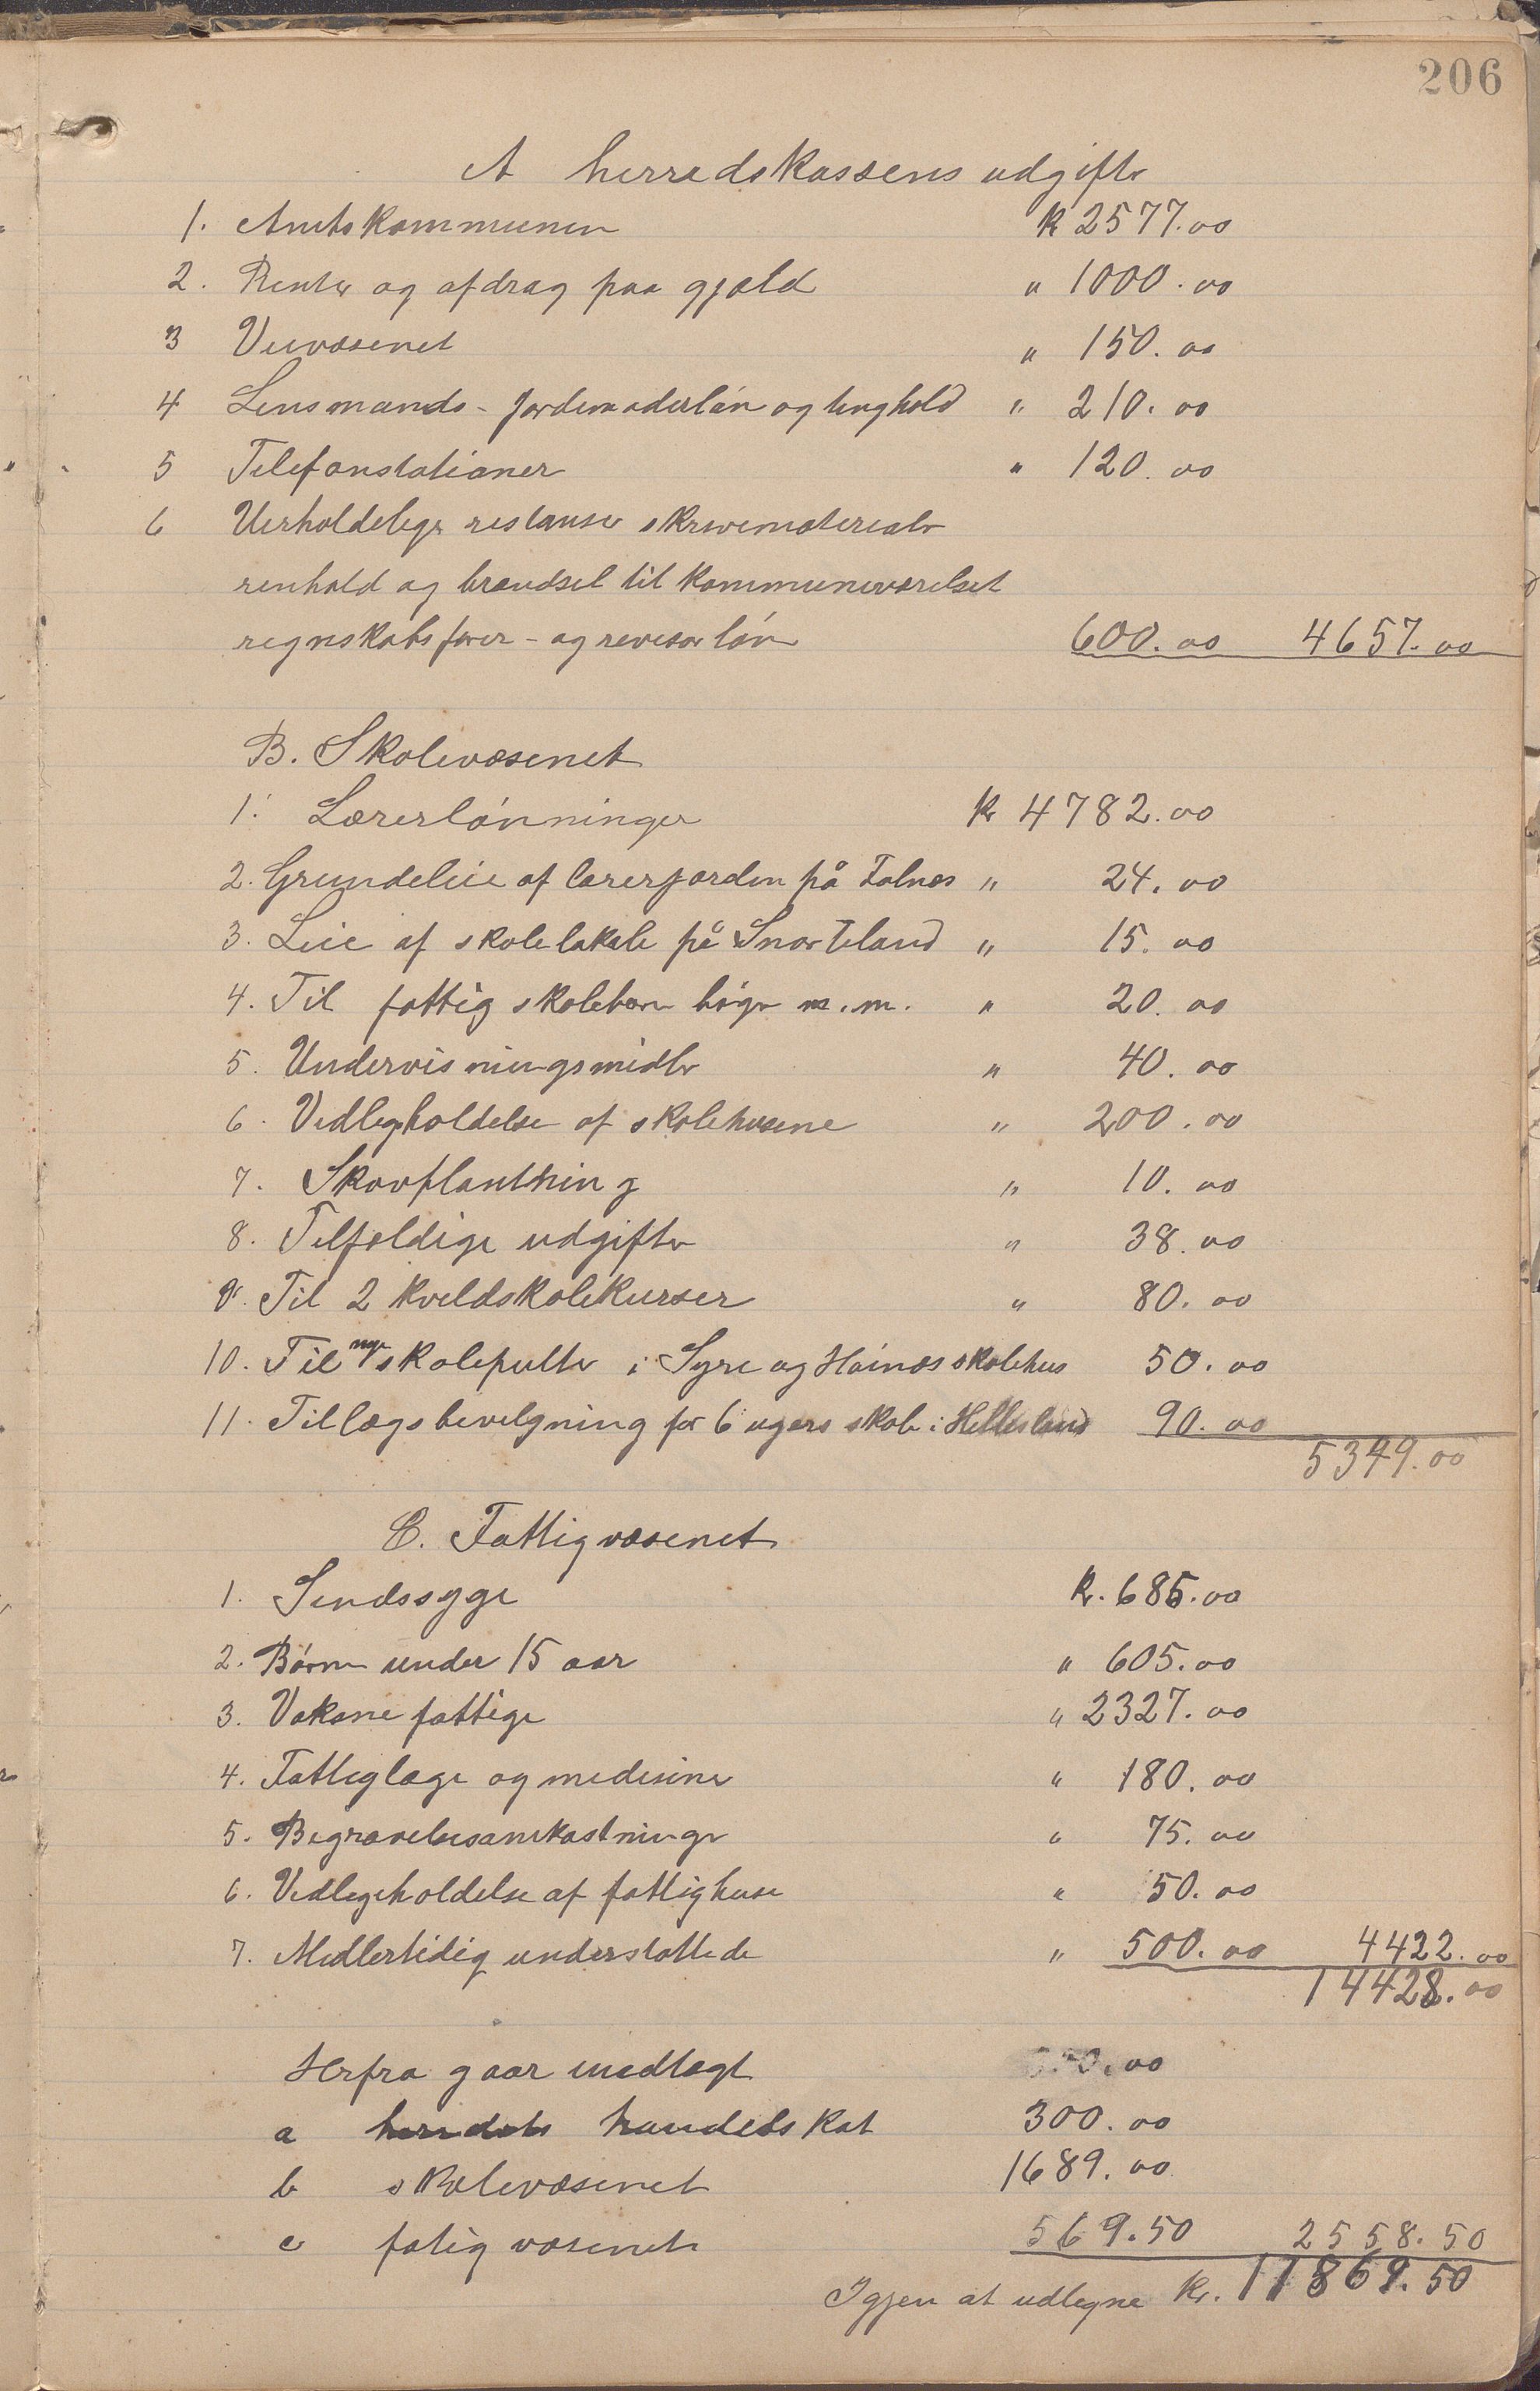 206
A herredskassens udgifter
1. Amtskommunen k 2577.00
2. Renter og afdrag paa gjæld " 1000.00
3 Veivæsenet " 150.00
4 Lensmands- jordemoderløn og tinghold " 210.00
5 Telefonstationer " 120.00
6 Uerholdelige restanser skrivematerialer
renhold og brændsel til kommuneværelset
regnskabsfører- og revisorløn 600.00 4657.00
B. Skolevæsenet
1. Lærerlønninger kr 4782.00
2. Grundeleie af lærerjorden på Falnes " 24.00
3. Leie af skolelokale på Snorteland " 15.00
4. Til fattig skolebørn bøger m.m. " 20.00
5. Undervisningsmidler " 40.00
6. Vedlegholdelse af skolehusene " 200.00
7. Skovplantning " 10.00
8. Tilfældige udgifter " 38.00
9. Til 2 kveldskolekurser " 80.00
10. Til nye skolepulter i Syre og Høines skolehus 50.00
11. Tillægsbevilgning for 6 ugers skole i Hellesland 90.00
5349.00
C. Fattigvæsenet
1. Sindssyge kr. 685.00
2. Børn under 15 aar " 605.00
3. Voksne fattige " 2327.00
4. Fattiglæge og mediciner " 180.00
5. Begravelsesomkostninger " 75.00
6. Vedligeholdelse af fattighuse " 50.00
7. Midlertidig understøttede " 500.00 4422.00
14428.00
Herfra gaar indtægt
a herredets handelsskat 300.00
b skolevæsenet 1689.00
c fatigvæsenet 569.50 2558.50
Igjen at udlegne kr. 11869.50